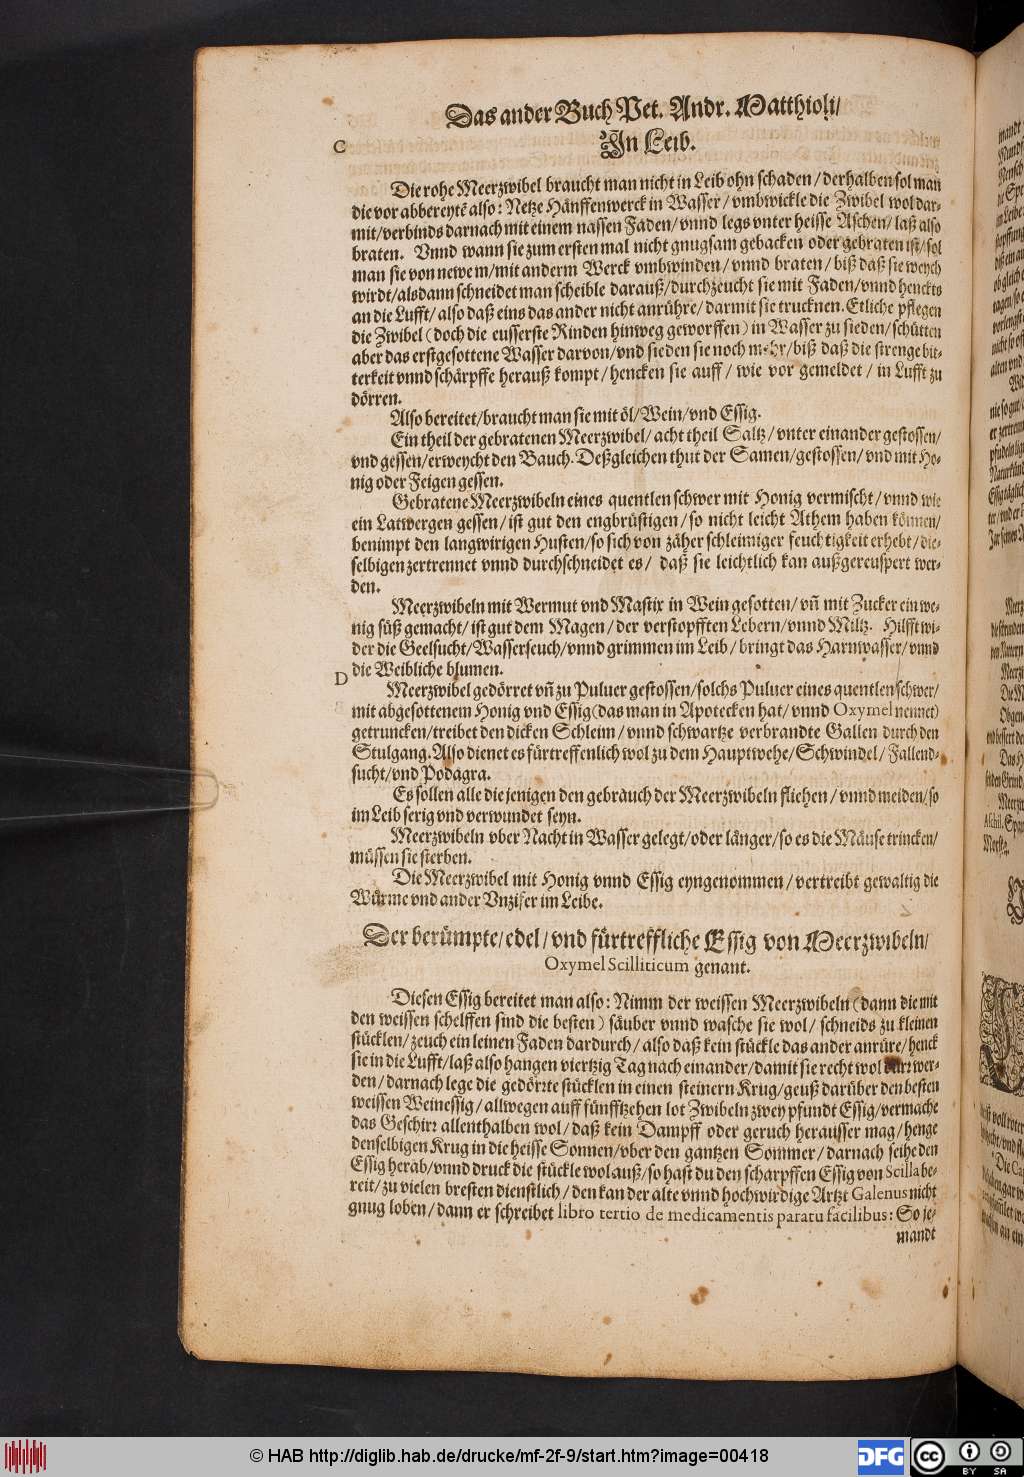 Das ander Buch Pet. Andr. Matthioli/
C
In Leib.
Die rohe Meerzwibel braucht man nicht in Leib ohn schaden/ derhalben sol man
die vor abbereytẽ also: Netze Hänffenwerck in Wasser/ vmbwickle die Zwibel wol dar-
mit/verbinds darnach mit einem nassen Faden/ vnnd legs vnter heisse Aschen/ laß also
braten. Vnnd wann sie zum ersten mal nicht gnugsam gebacken oder gebraten ist/ sol
man sie von newem/mit anderm Werck vmbwinden/ vnnd braten/ biß daß sie weych
wirdt/alsdann schneidet man scheible darauß/durchzeucht sie mit Faden/vnnd henckts
an die Lufft/ also daß eins das ander nicht anrühre/ darmit sie trucknen. Etliche pflegen
die Zwibel (doch die eusserste Rinden hinweg geworffen) in Wasser zu sieden/ schütten
aber das erstgesottene Wasser darvon/vnd sieden sie noch mehr/biß daß die strenge bit-
terkeit vnnd schärpffe herauß kompt/ hencken sie auff/ wie vor gemeldet/ in Lufft zu
dörren.
Also bereitet/braucht man sie mit öl/Wein/vnd Essig.
Ein theil der gebratenen Meerzwibel/ acht theil Saltz/ vnter einander gestossen/
vnd gessen/erweycht den Bauch. Deßgleichen thut der Samen/gestossen/ vnd mit Ho-
nig oder Feigen gessen.
Gebratene Meerzwibeln eines quentlen schwer mit Honig vermischt/ vnnd wie
ein Latwergen gessen/ ist gut den engbrüstigen/ so nicht leicht Athem haben können/
benimpt den langwirigen Husten/so sich von zäher schleimiger feuchtigkeit erhebt/ die-
selbigen zertrennet vnnd durchschneidet es/ daß sie leichtlich kan außgereuspert wer-
den.
Meerzwibeln mit Wermut vnd Mastix in Wein gesotten/ vñ mit Zucker ein we-
nig süß gemacht/ ist gut dem Magen/ der verstopfften Lebern/vnnd Miltz. Hilfft wi-
der die Geelsucht/Wasserseuch/vnnd grimmen im Leib/ bringt das Harnwasser/ vnnd
die Weibliche blumen.
D
Meerzwibel gedörret vñ zu Puluer gestossen/solchs Puluer eines quentlen schwer/
mit abgesottenem Honig vnd Essig (das man in Apotecken hat/ vnnd Oxymel nennet)
getruncken/treibet den dicken Schleim/ vnnd schwartze verbrandte Gallen durch den
Stulgang. Also dienet es fürtreffenlich wol zu dem Hauptwehe/Schwindel/ Fallend-
sucht/vnd Podagra.
Es sollen alle die jenigen den gebrauch der Meerzwibeln fliehen/ vnnd meiden/so
im Leib serig vnd verwundet seyn.
Meerzwibeln vber Nacht in Wasser gelegt/oder länger/so es die Mäuse trincken/
müssen sie sterben.
Die Meerzwibel mit Honig vnnd Essig eyngenommen/ vertreibt gewaltig die
Würme vnd ander Vnzifer im Leibe.
Der berümpte/edel/ vnd fürtreffliche Essig von Meerzwibeln/
Oxymel Scilliticum genant.
Diesen Essig bereitet man also: Nimm der weissen Meerzwibeln (dann die mit
den weissen schelffen sind die besten) säuber vnnd wasche sie wol/ schneids zu kleinen
stücklen/ zeuch ein leinen Faden dardurch/ also daß kein stückle das ander anrüre/ henck
sie in die Lufft/laß also hangen viertzig Tag nach einander/damit sie recht wol dürr wer-
den/ darnach lege die gedörrte stücklen in einen steinern Krug/geuß darüber den besten
weissen Weinessig/ allwegen auff fünfftzehen lot Zwibeln zwey pfundt Essig/vermache
das Geschirr allenthalben wol/ daß kein Dampff oder geruch herausser mag/ henge
denselbigen Krug in die heisse Sonnen/vber den gantzen Sommer/ darnach seihe den
Essig herab/vnnd druck die stückle wol auß/so hast du den scharpffen Essig von Scilla be-
reit/ zu vielen bresten dienstlich/ den kan der alte vnnd hochwirdige Artzt Galenus nicht
gnug loben/ dann er schreibet libro tertio de medicamentis paratu facilibus: So je-
mandt
© HAB http://diglib.hab.de/drucke/mf-2f-9/start.htm?image=00418
DFG
cc
BY SA